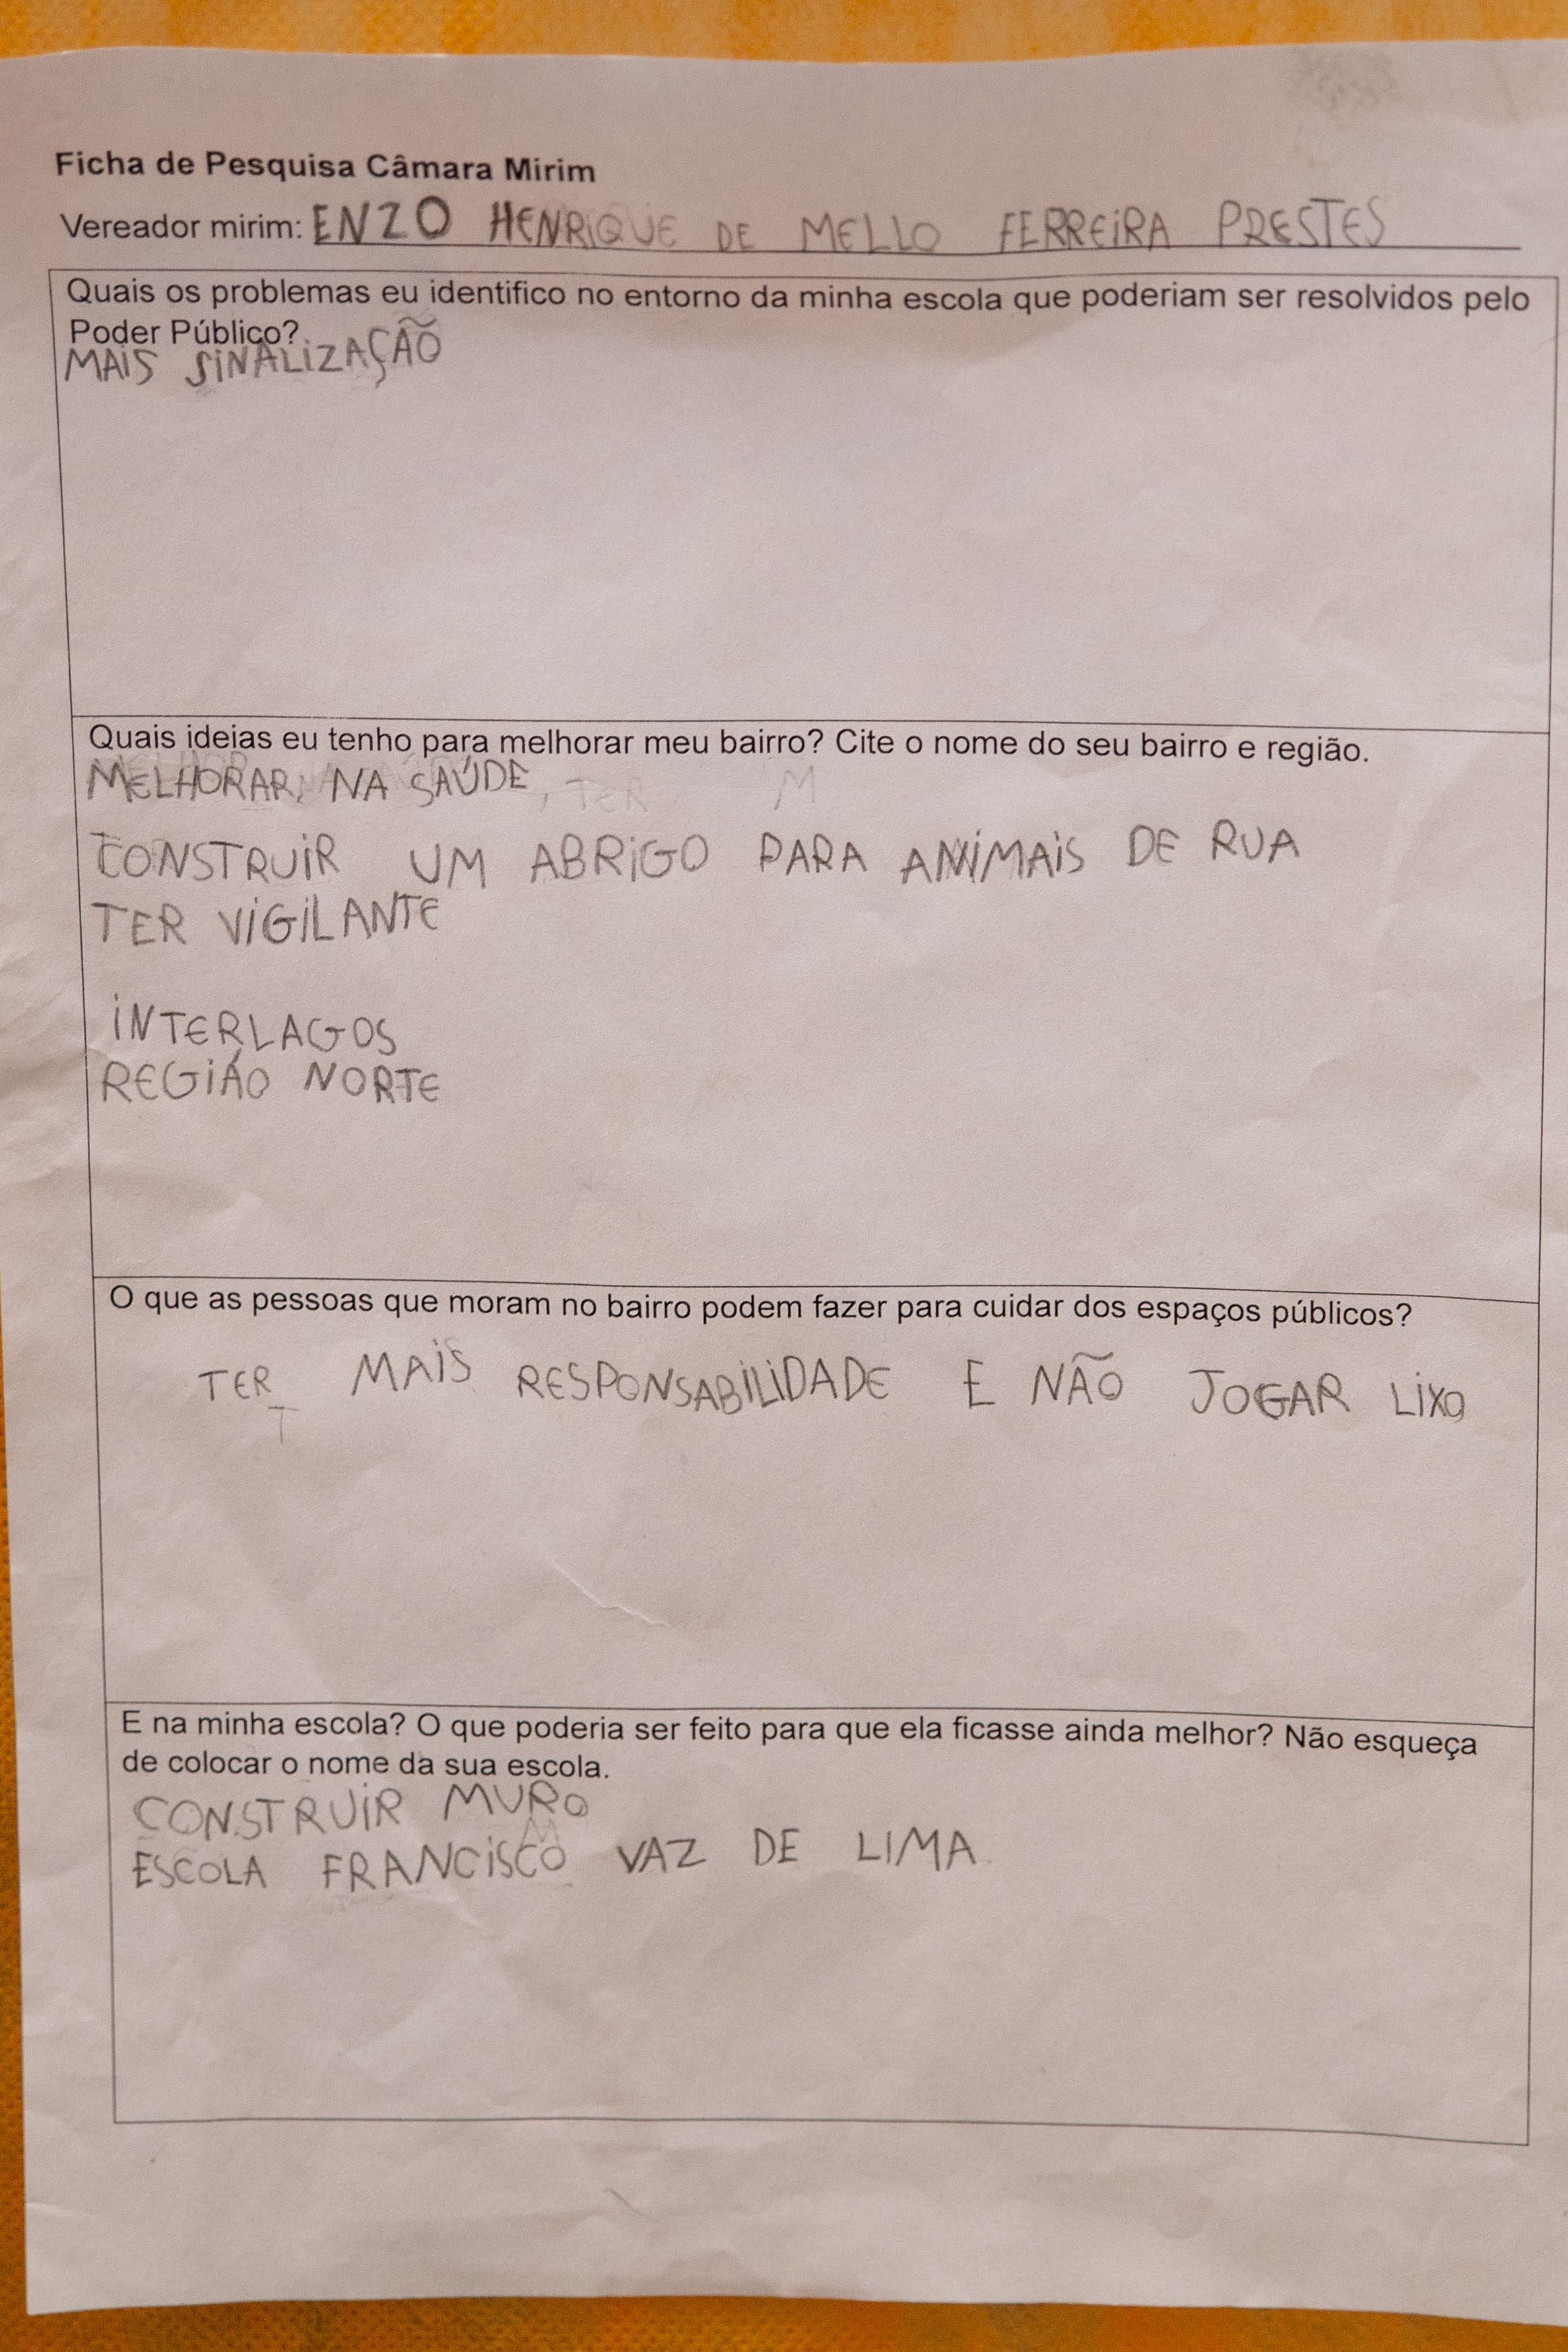 Ficha de Pesquisa Câmara Mirim
Vereador mirim: ENZO HENRIQUE DE MELLO FERREIRA PRESTES
Quais os problemas eu identifico no entorno da minha escola que poderiam ser resolvidos pelo
Poder Público?
MAIS SINALIZAÇÃO
Quais ideias eu tenho para melhorar meu bairro? Cite o nome do seu bairro e região.
MELHORAR NA SAÚDE,
CONSTRUIR UM ABRIGO PARA ANIMAIS DE RUA
TER VIGILANTE
INTERLAGOS
REGIÁO NORTE
O que as pessoas que moram no bairro podem fazer para cuidar dos espaços públicos?
TER MAIS RESPONSABILIDADE E NÃO JOGAR LIXO
E na minha escola? O que poderia ser feito para que ela ficasse ainda melhor? Não esqueça
de colocar o nome da sua escola.
CONSTRUIR MURO
ESCOLA FRANCISCO VAZ DE LIMA